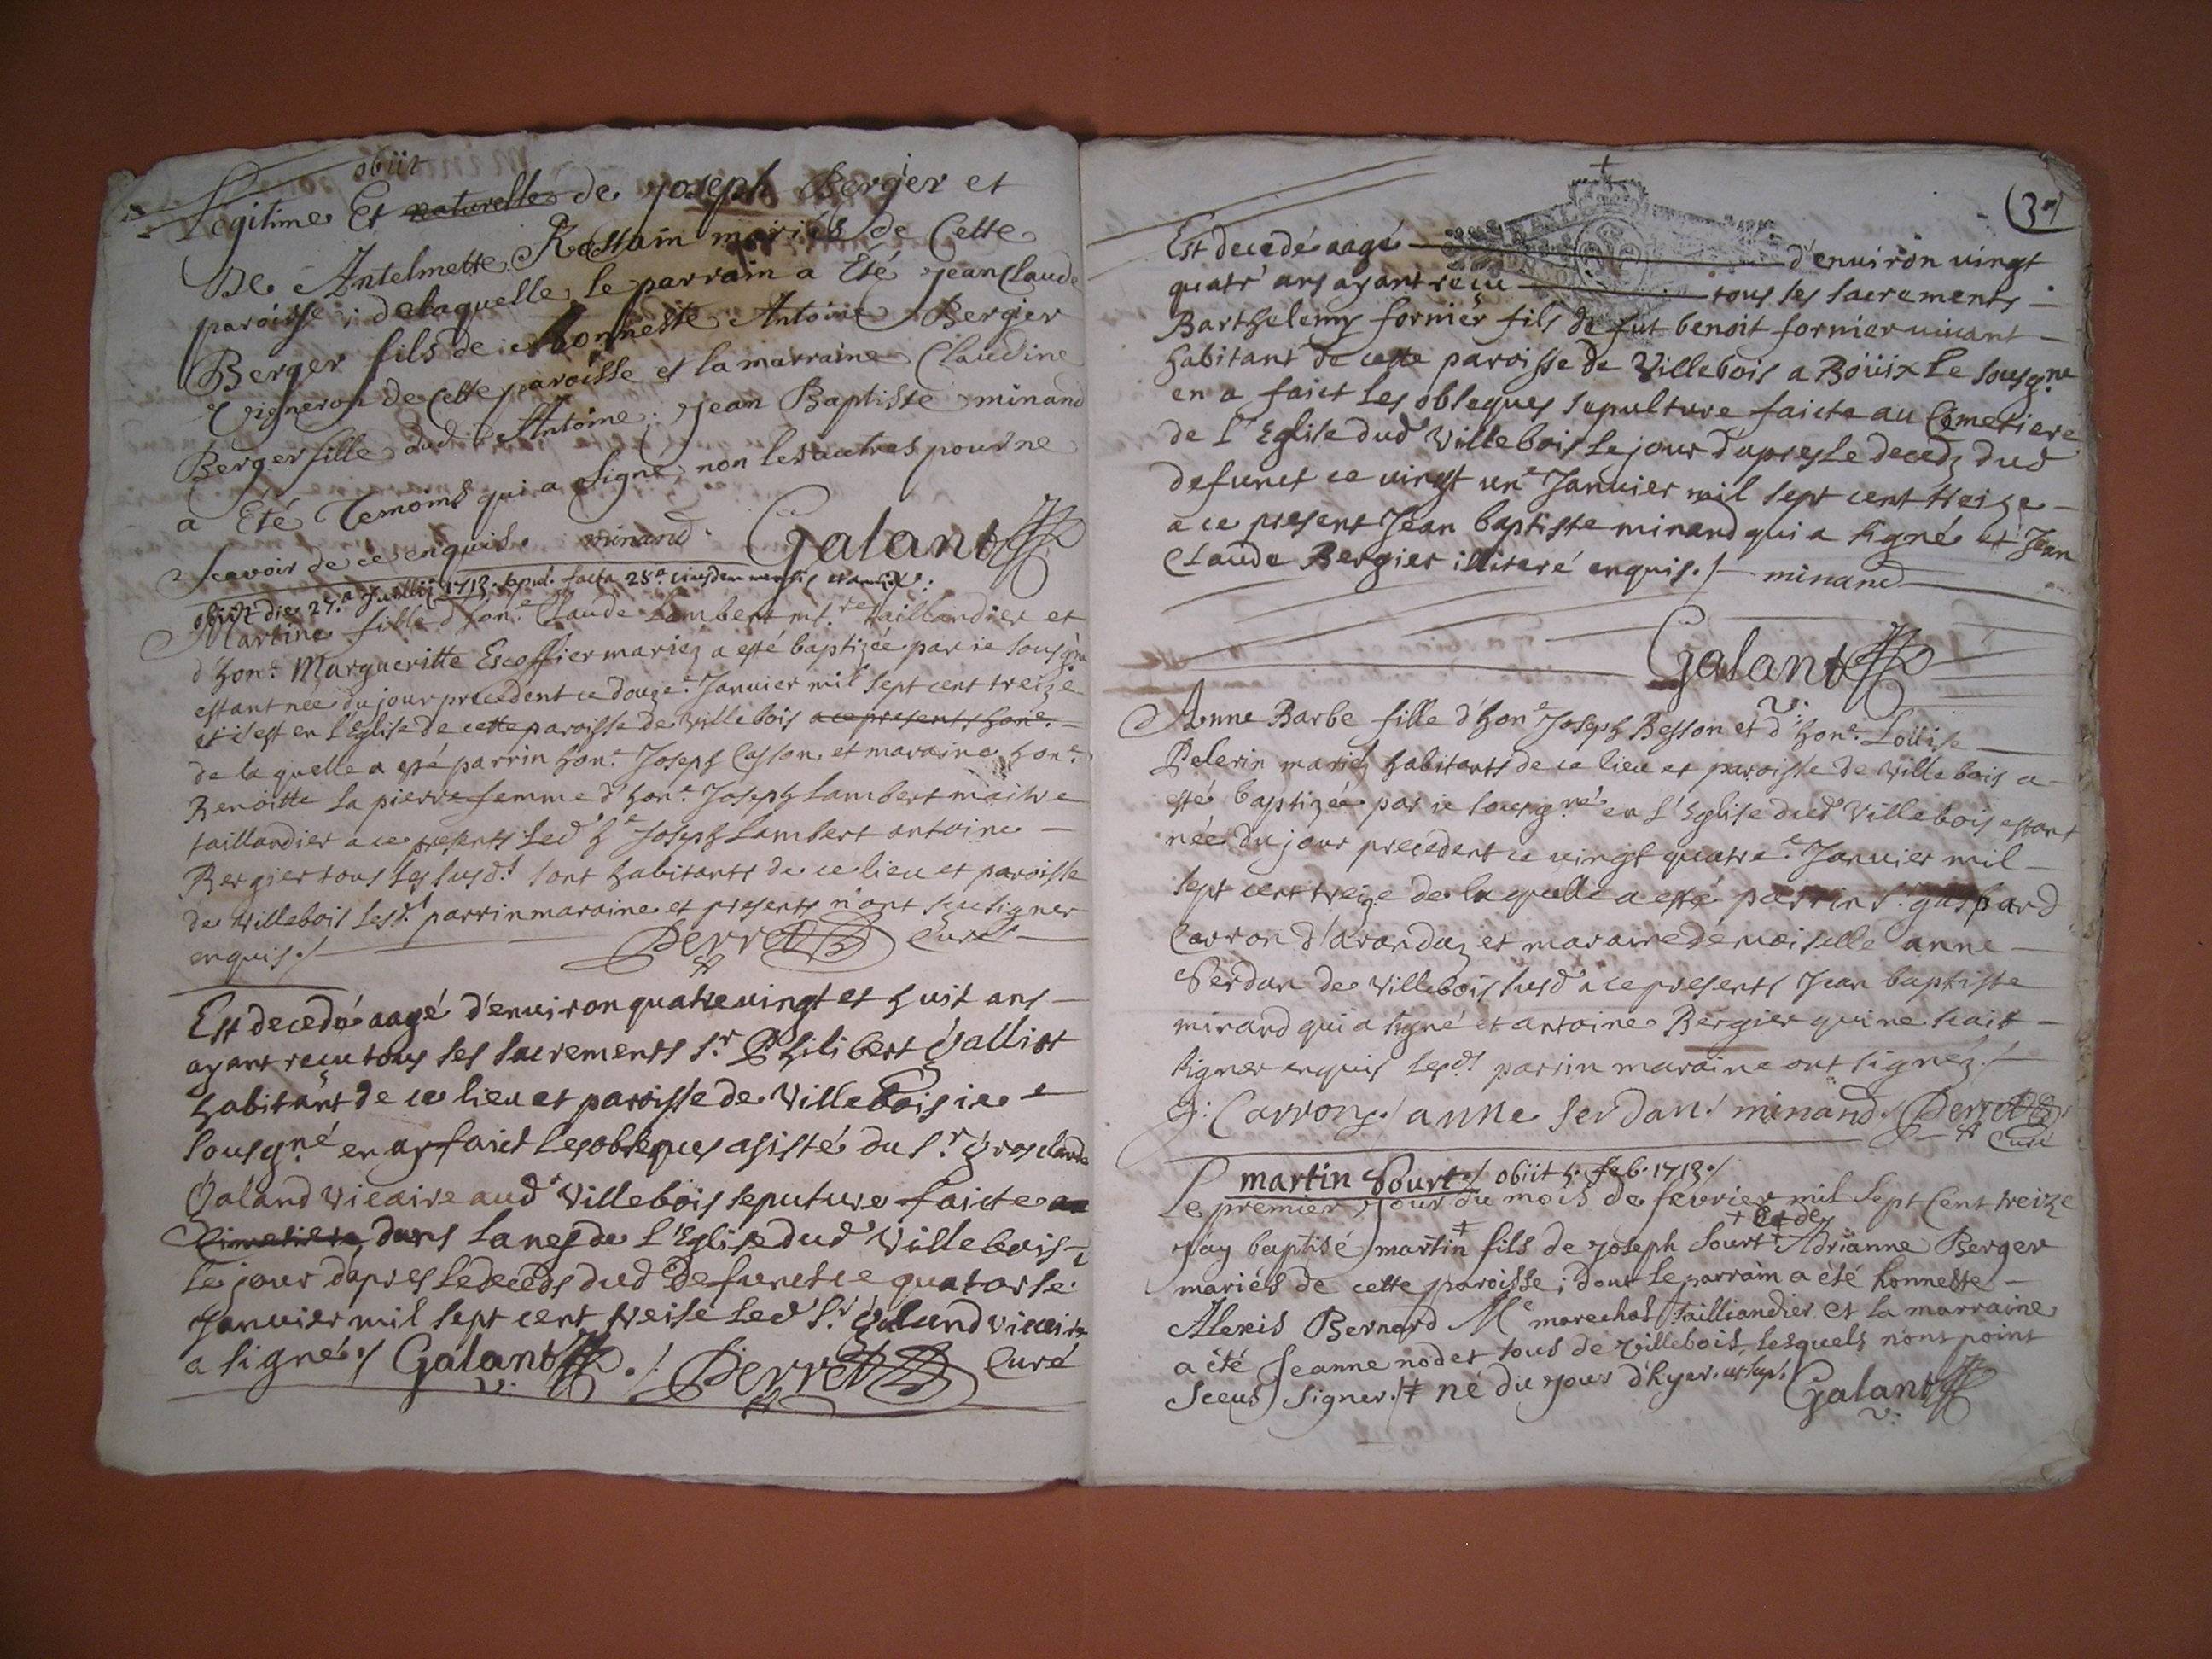 obiit
Legitime Et naturelle de Joseph Berger et
De Antelmette Rostain mariés de Cette
paroisse ; delaquelle le parrain a Eté Jean Claude
Berger fils de Honneste Antoine Bergier
Vigneron de Cette paroisse et la marraine Claudine
Berger fille dud. Antoine ; Jean Baptiste minand
a Eté Temoins qui a signé non les autres pour ne
Scavoir de ce enquis. minand. Galand
obiit die 27.a Jullij 1713. sepul. facta 28.a eiusdem mensis et anni
Martine fille d'hon.e Claude Lambert m.re taillandier et
d'hon.e Margueritte Escoffier mariez a esté baptizée par ie sousg.né
estant née du jour precedent ce douze.e Januier mil sept cent treize
et c'est en l'Eglise de cette paroisse de villebois a ce presents hone.
de la quelle a esté parrin hon.e Joseph Casson et maraine hon.e
Benoitte La pierre femme d'hon.e Joseph Lambert maitre
taillandier a ce presents led h.e Joseph Lambert antoine
Bergier tous les susd.t sont habitants de ce lieu et paroisse
de villebois lesd.t parrin maraine et presents n'ont sceu signer
enquis./ Perret Curé
Est decedé aagé d'enuiron quatre uingt et huit ans
ayant receu tous les sacrements S.r Philibert Galliot
habitant de ce lieu et paroisse de Villebois ie
sousg.né en ay faict les obseques asisté du S.r
Galand Vicaire aud Villebois seputure faicte au
Cimetiere dans la nef de l'Eglise dud Villebois
le jour dapres le deceds dud defunct ce quatorse
Januier mil sept cent treise led S.r Galand vicaire
a signé./ Galand v. ./ Perret Curé
(3.e)
Est decedé aagé d'enuiron uingt
quatr' ans ayant receu tous les sacrements
Barthelemy fornier fils de fut benoit fornier uiuant
habitant de cette paroisse de Villebois a Boüix Le sousg.ne
en a faict les obseques sepulture faicte au Cimetiere
de l'Eglise dud Villebois le jour d'apres le decedz dud
defunct ce uingt un.e Januier mil sept cent treize
a ce present Jean baptiste minand qui a signé et Jean
Claude Bergier illiteré enquis./ minand
Galand
v.
Anne Barbe fille d'hon.e Joseph Besson et d'hon.e Loüise
Pelerin mariez habitants de ce lieu et paroisse de villebois a
esté baptizée par ie sousg.né en l'Eglise dud Villebois estant
née du jour precedent ce uingt quatre.e Januier mil
sept cent treize de la quelle a esté parrin S.r gaspard
Carron d'arandaz et maraine demoiselle anne
Serdan de villebois susd a ce presents Jean baptiste
minand qui a signé et antoine Bergier qui ne scait
signer enquis lesd.t parrin maraine ont signéz./
G: Carron./ anne serdan./ minand./ Perret Curé
martin Sourt./ obiit 4. feb. 1713./
Le premier Jour du mois de fevrier mil Sept Cent treize
+ Et de
J'ay baptisé martin ‡ fils de Joseph Sourt + Adrianne Berger
mariés de cette paroisse ; dont le parrain a été honneste
Alexis Bernard M.e marechal Tailliandier et la marraine
a été Jeanne nodet tous de Villebois, lesquels n'ont point
Sceus Signer./ ‡ né du jour d'hyer. ut sup./ Galand
v.